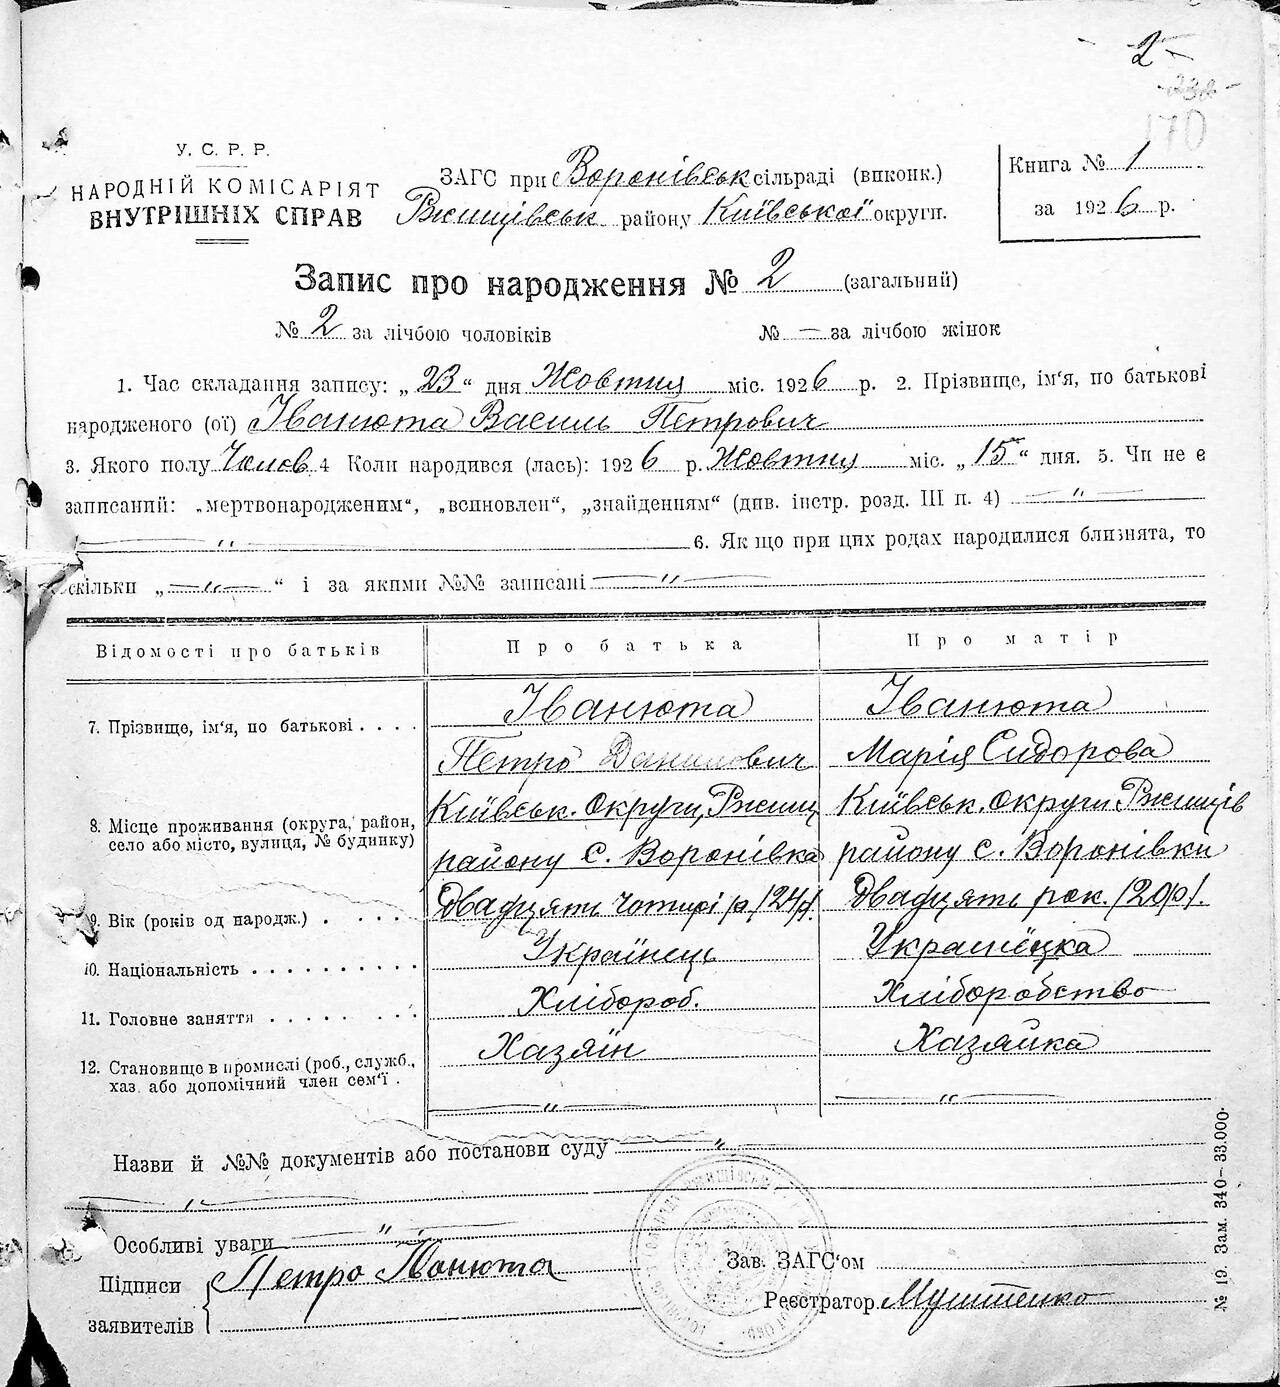 - 2 -
- 232 -
170
У. С. Р. Р.
НАРОДНІЙ КОМІСАРІЯТ
ВНУТРІШНІХ СПРАВ
ЗАГС при Воронівськ сільраді (виконк.)
Ржищівськ району Київської округи.
Книга № 1
за 1926 р.
Запис про народження № 2 (загальний)
№ 2 за лічбою чоловіків № — за лічбою жінок
1. Час складання запису: „23“ дня Жовтня міс. 1926 р. 2. Прізвище, ім‘я, по батькові
народженого (ої) Іванюта Василь Петрович
3. Якого полу Чолов. 4 Коли народився (лась): 1926 р. Жовтня міс. „15“ дня. 5. Чи не є
записаний: „мертвонародженим“, „всиновлен“, „знайденням“ (див. інстр. розд. III п. 4) — „ —
— „ — 6. Якщо при цих родах народилися близнята, то
скільки „— „ —“ і за якими №№ записані — „ —
Відомості про батьків Про батька Про матір
7. Прізвище, ім‘я, по батькові . . . . Іванюта Іванюта
Петро Данилович Марія Сидорова
8. Місце проживання (округа, район, село або місто, вулиця, № будинку) Київськ. Округи, Ржищ Київськ. Округи Ржищів
району с. Воронівка району с. Воронівки
9. Вік (років од народж.) . . . . Двадцять чотирі р. /24р/. Двадцять рок. /20р/.
10. Національність . . . . . . . . . . Українець Українецка
11. Головне заняття . . . . . . . . Хлібороб. Хліборобство
12. Становище в промислі (роб., служб., хаз. або допомічний член сем‘ї . Хазяїн Хазяйка
— „ — — „ —
Назви й №№ документів або постанови суду — „ —
— „ —
Особливі уваги — „ —
Підписи заявителів Петро Іванюта
Зав. ЗАГС‘ом
Реєстратор Муштенко
№ 19. Зам. 340—33.000.